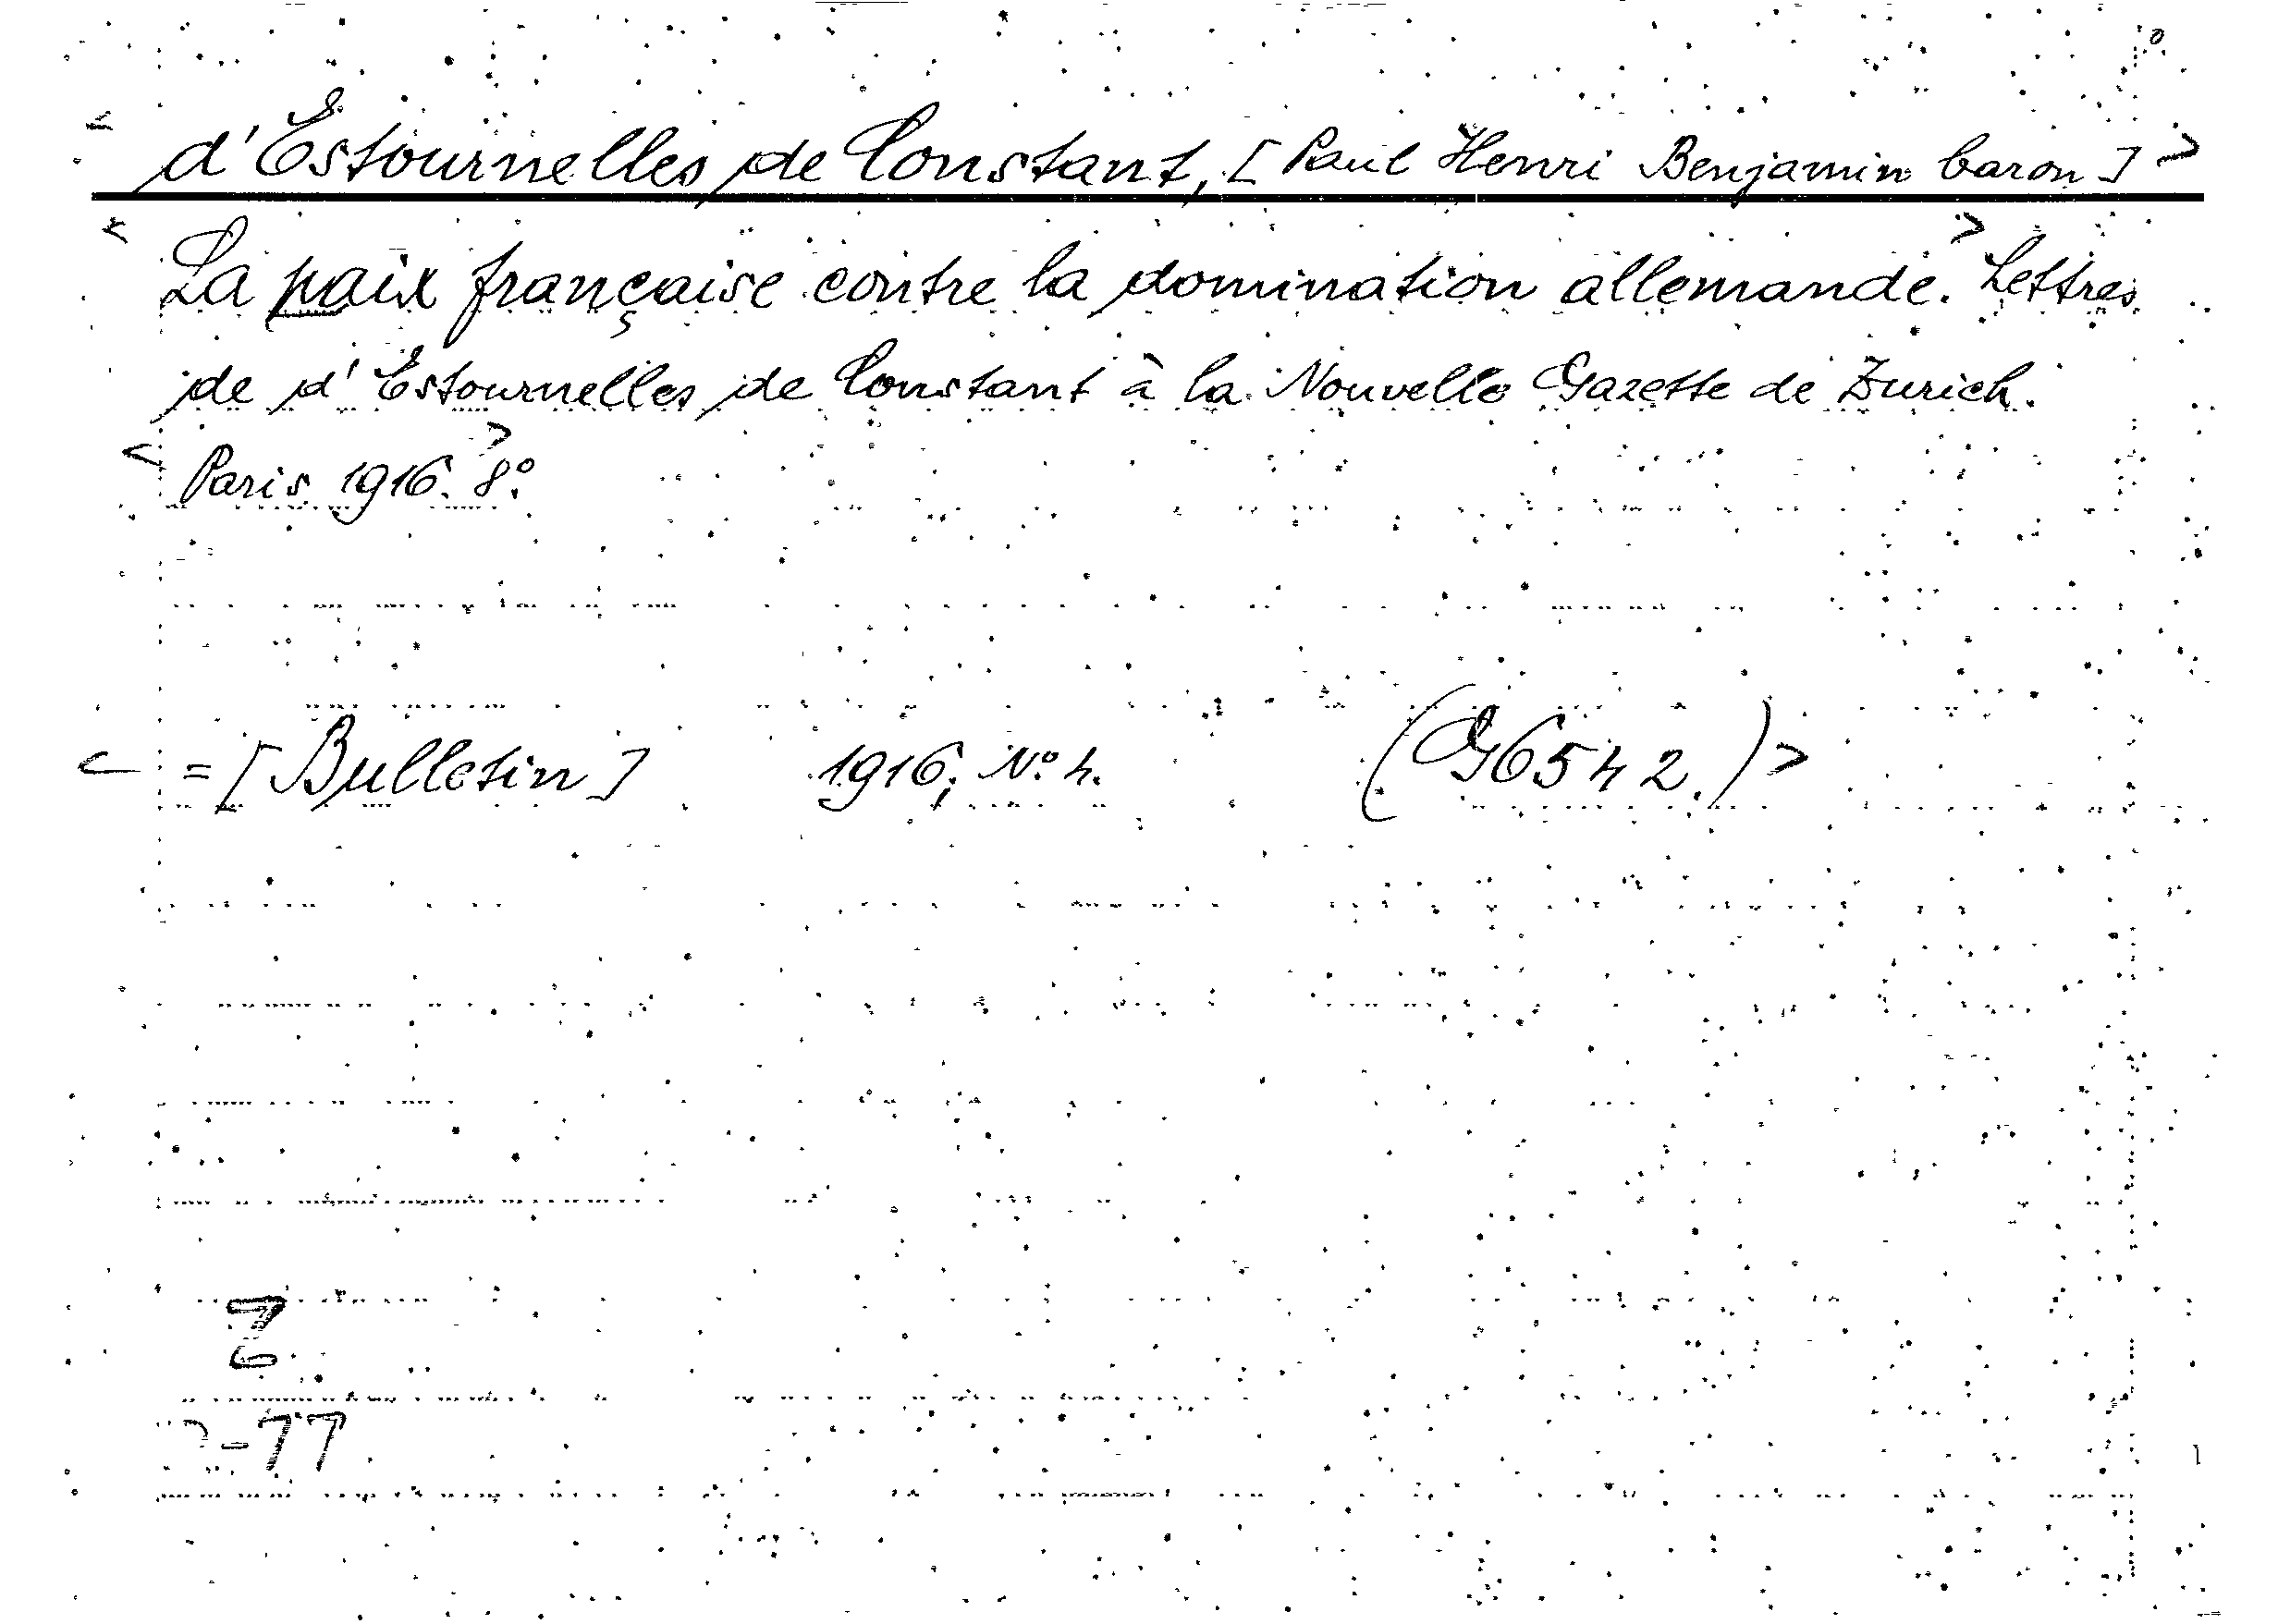 < d'Estournelles de Constant, [Paul Henri Benjamin baron] >
< La paix française contre la domination allemande. > Lettres
de d'Estournelles de Constant à la Nouvelle Gazette de Zurich.
< Paris 1916. > 8°.
< = [Bulletin] 1916, No. 4. (G 6542.) >
-77